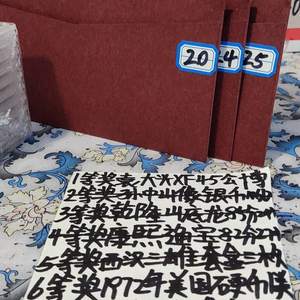 20
24
25
1等奖袁大头XF45公博
2等奖孙中山像银币
3等奖乾隆
4等奖康熙通宝82分
5等奖西汉三
6等奖1972年美国硬币